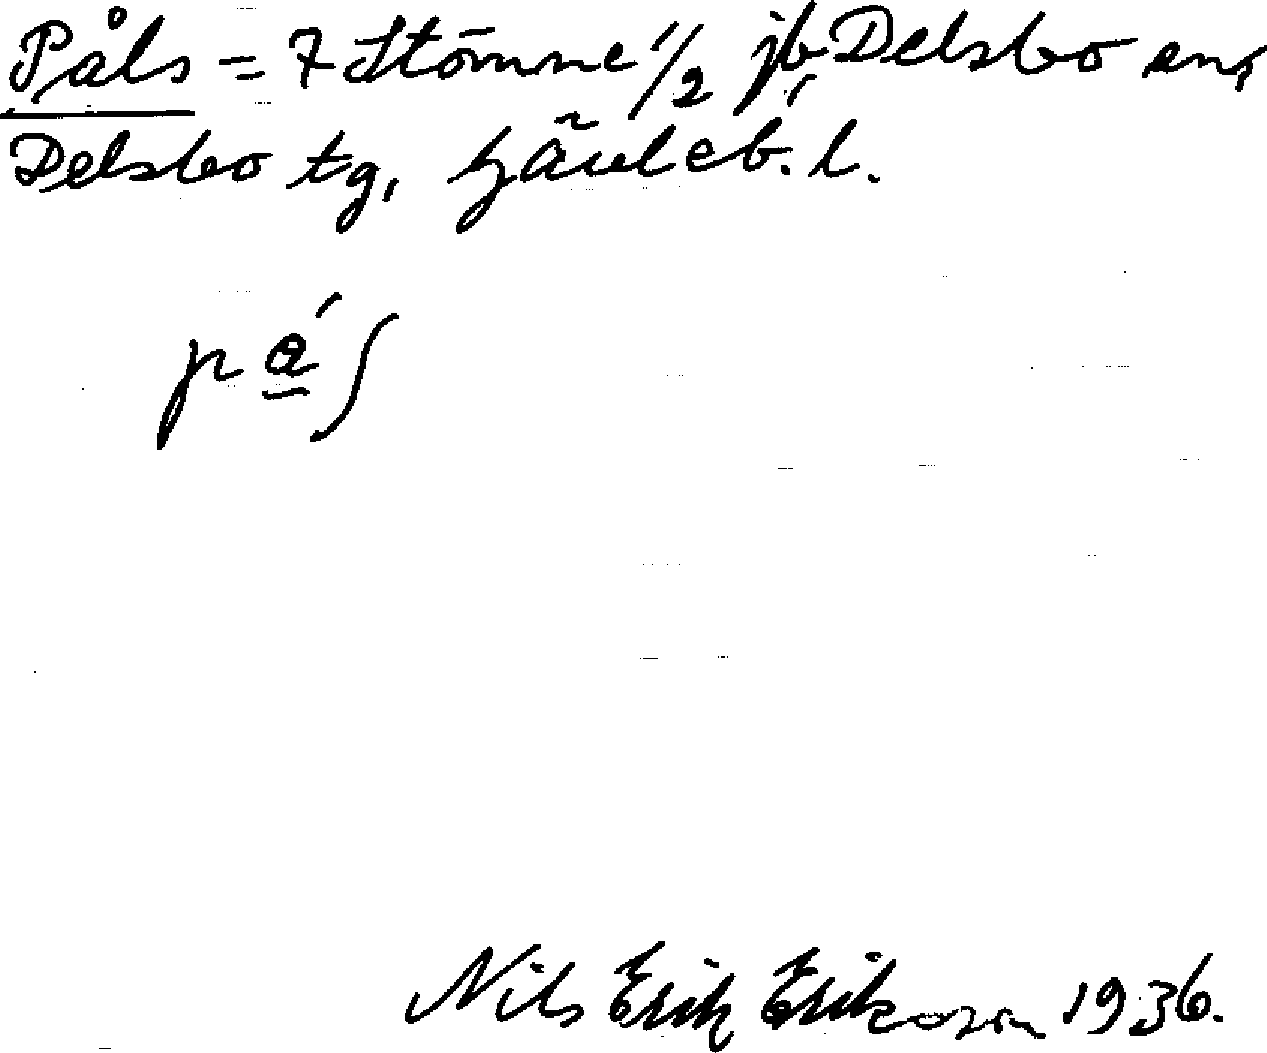 Påls = 7 Stömne 1/2 jb, Delsbo sn,
Delsbo tg, Gävleb. l.
pa̲´ʃ
Nils Erik Erikson 1936.